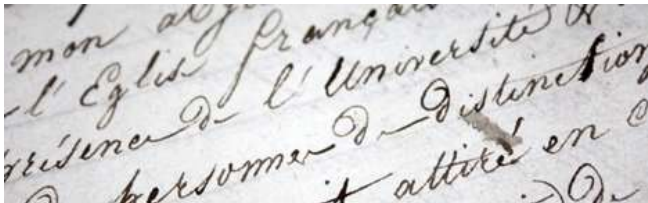 mon
l'Eglise français
présence de l'Université
personnes de distinction
attiré en
de